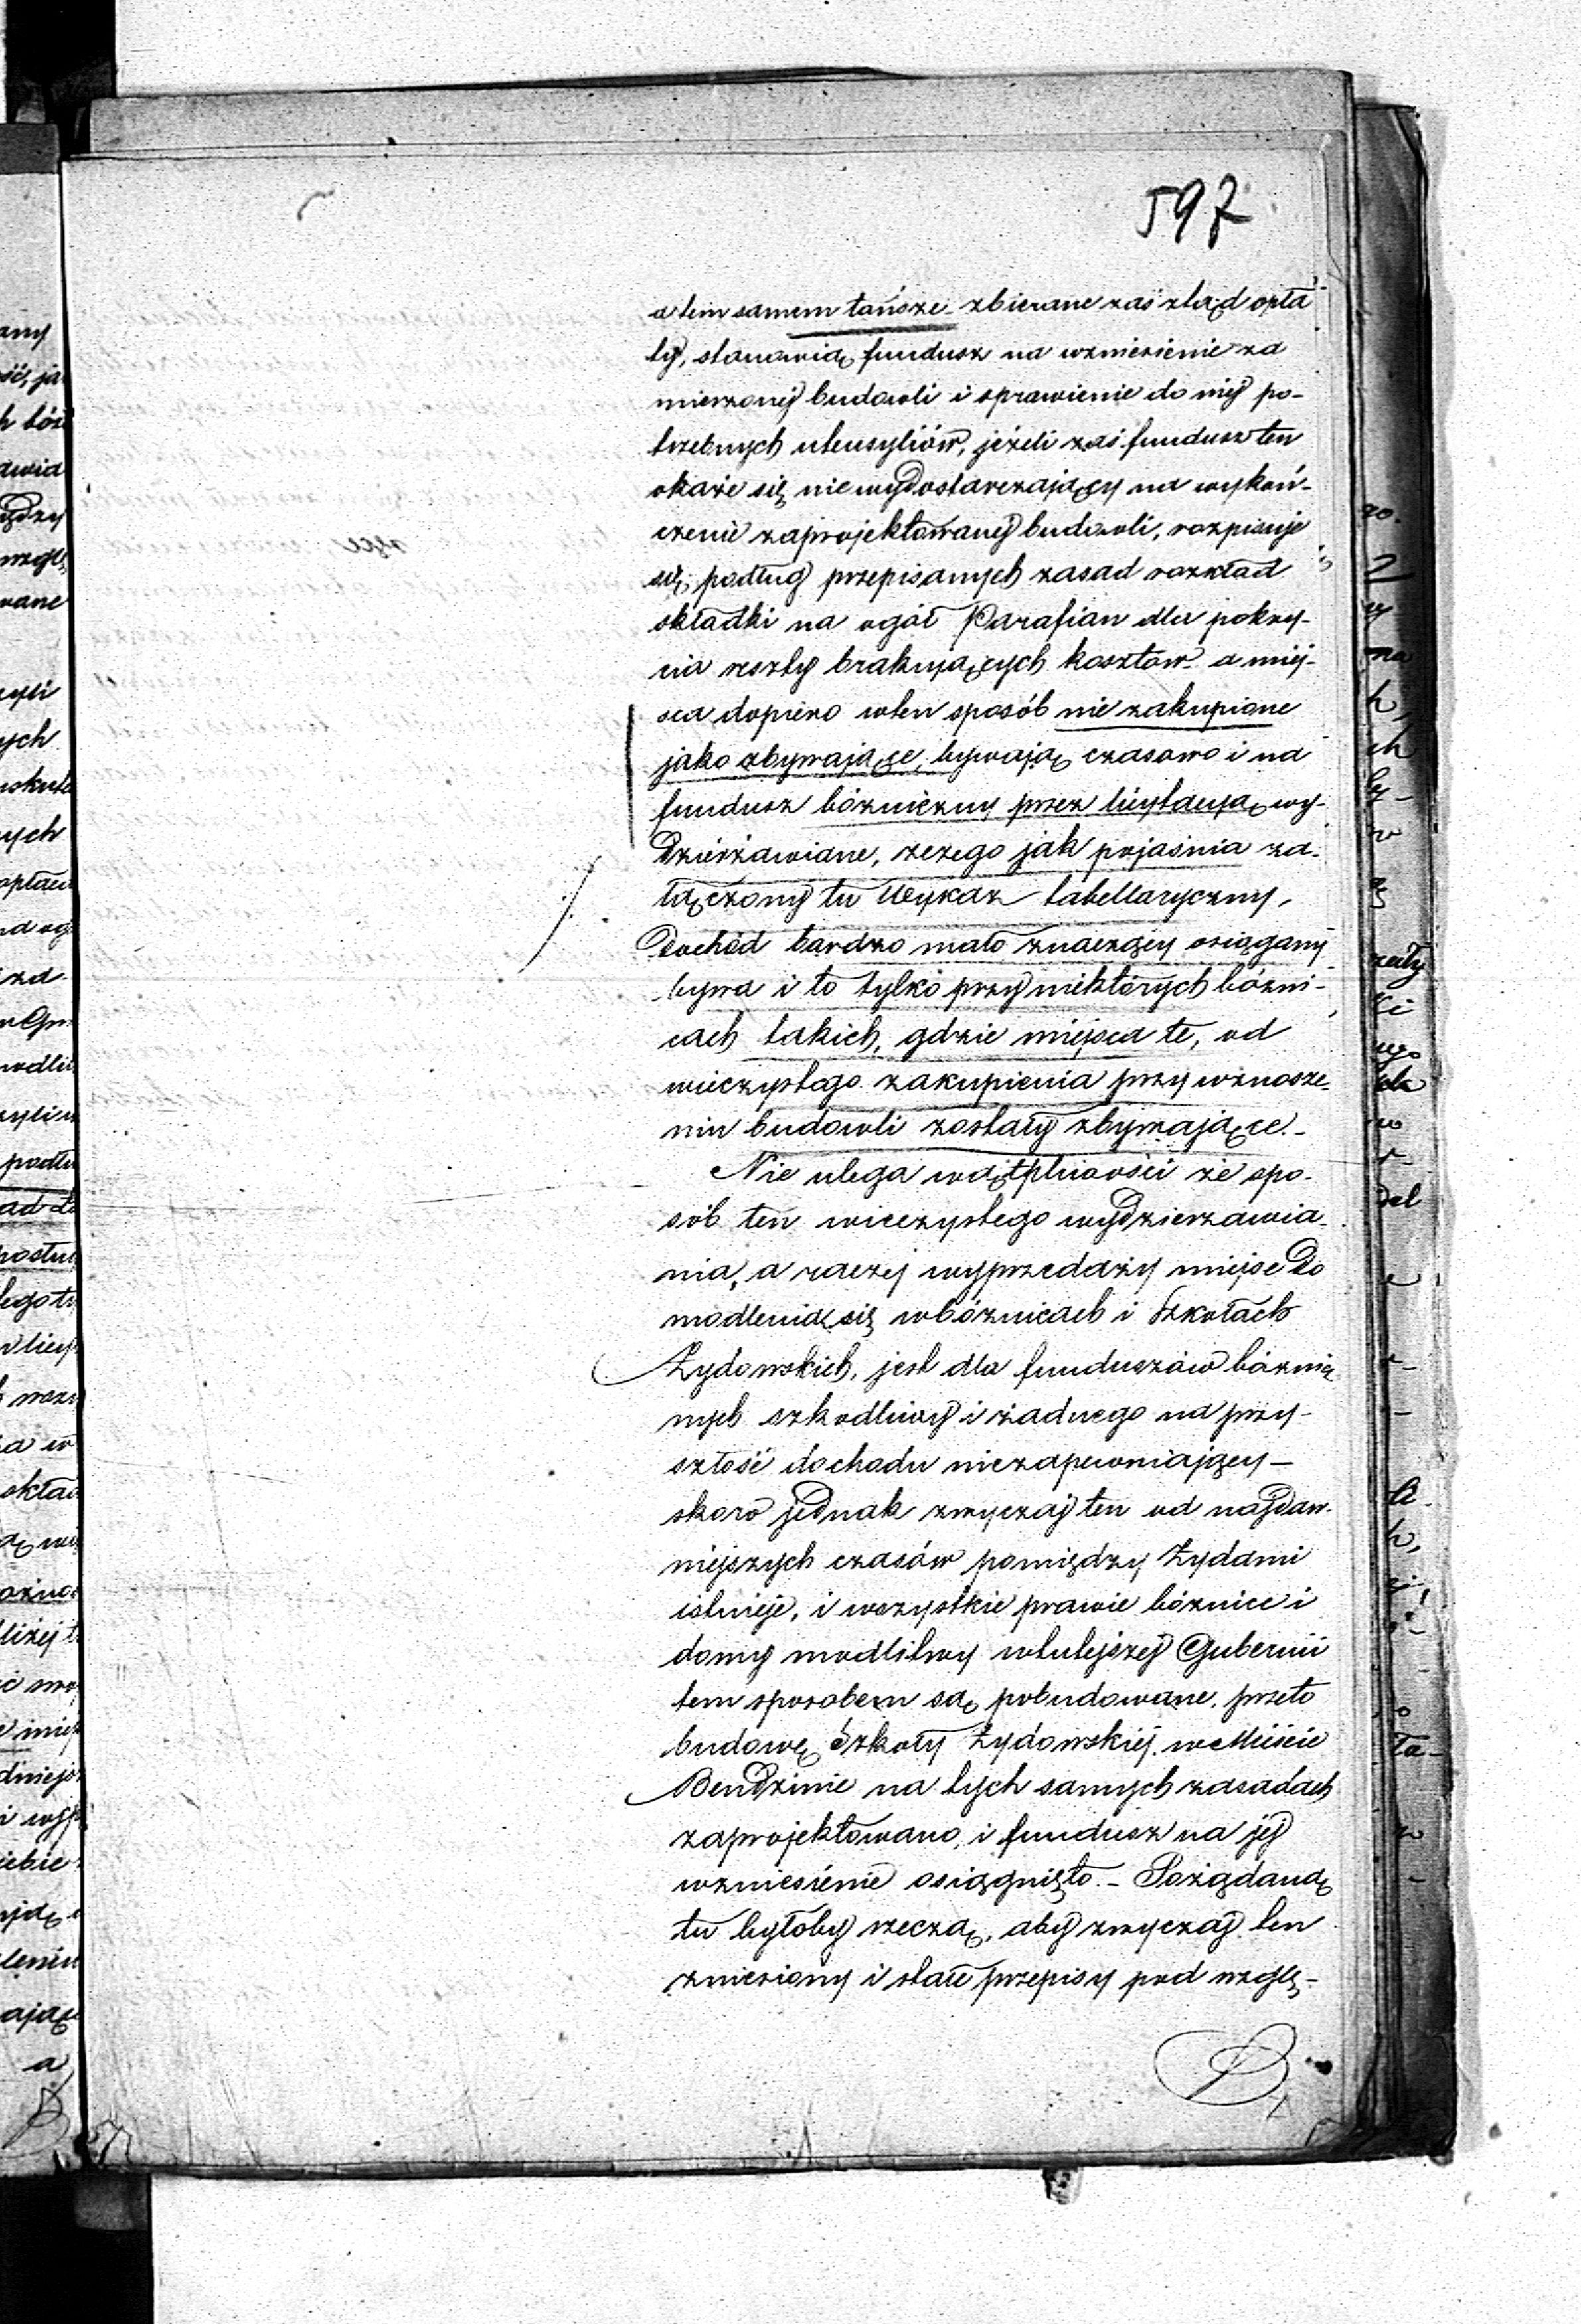 597
a tem samem tańsze - zbierane zaś ztąd opła
ty, stanowią fundusz na wzniesienie za
mierzonéj budowli i sprawienie do niéj po-
trzebnych utensyliów, jeżeli zaś fundusz ten
okaże się niewydostarczający na wykoń-
czenie zaprojektowanéj budowli, rozpisuje
się podług przepisanych zasad rozkład
składki na ogół Parafian dla pokry-
cia reszty brakujących kosztów - a miej-
sca dopiero wten sposób nie zakupione
jako zbywające, bywają czasowo i na
fundusz bózniczny przez licytacyą wy-
dzierżawiane, zczego jak pojaśnia za-
łączony tu Wykaz tabellaryczny,
Dochód bardzo mało znaczący osiągany
bywa i to tylko przy niektórych bózni-
cach takich, gdzie miejsca te, od
wieczystego zakupienia przy wznosze-
niu budowli zostały zbywające. -
Nie ulega wątpliwości że spo-
sób ten wieczystego wydzierzawia-
nia, a raczej wyprzedaży miejsc do
modlenia się wbóznicach i Szkołach
Żydowskich, jest dla funduszów bóznicz
nych szkodliwy i żadnego na przy-
szłość dochodu niezapewniający -
skoro jednak zwyczaj ten od najdaw-
niejszych czasów pomiędzy Żydami
istnieje, i wszystkie prawie bóznice i
domy modlitwy wtutejszéj Gubernii
tem sposobem są pobudowane, przeto
budowę Szkoły Żydowskiéj w Mieście
Bendzinie na tych samych zasadach
zaprojektowano, i fundusz na jéj
wzniesienie osiągnięto. - Pożądaną
tu byłoby rzeczą, aby zwyczaj ten
zniesiony i stałe przepisy pod wzglę-